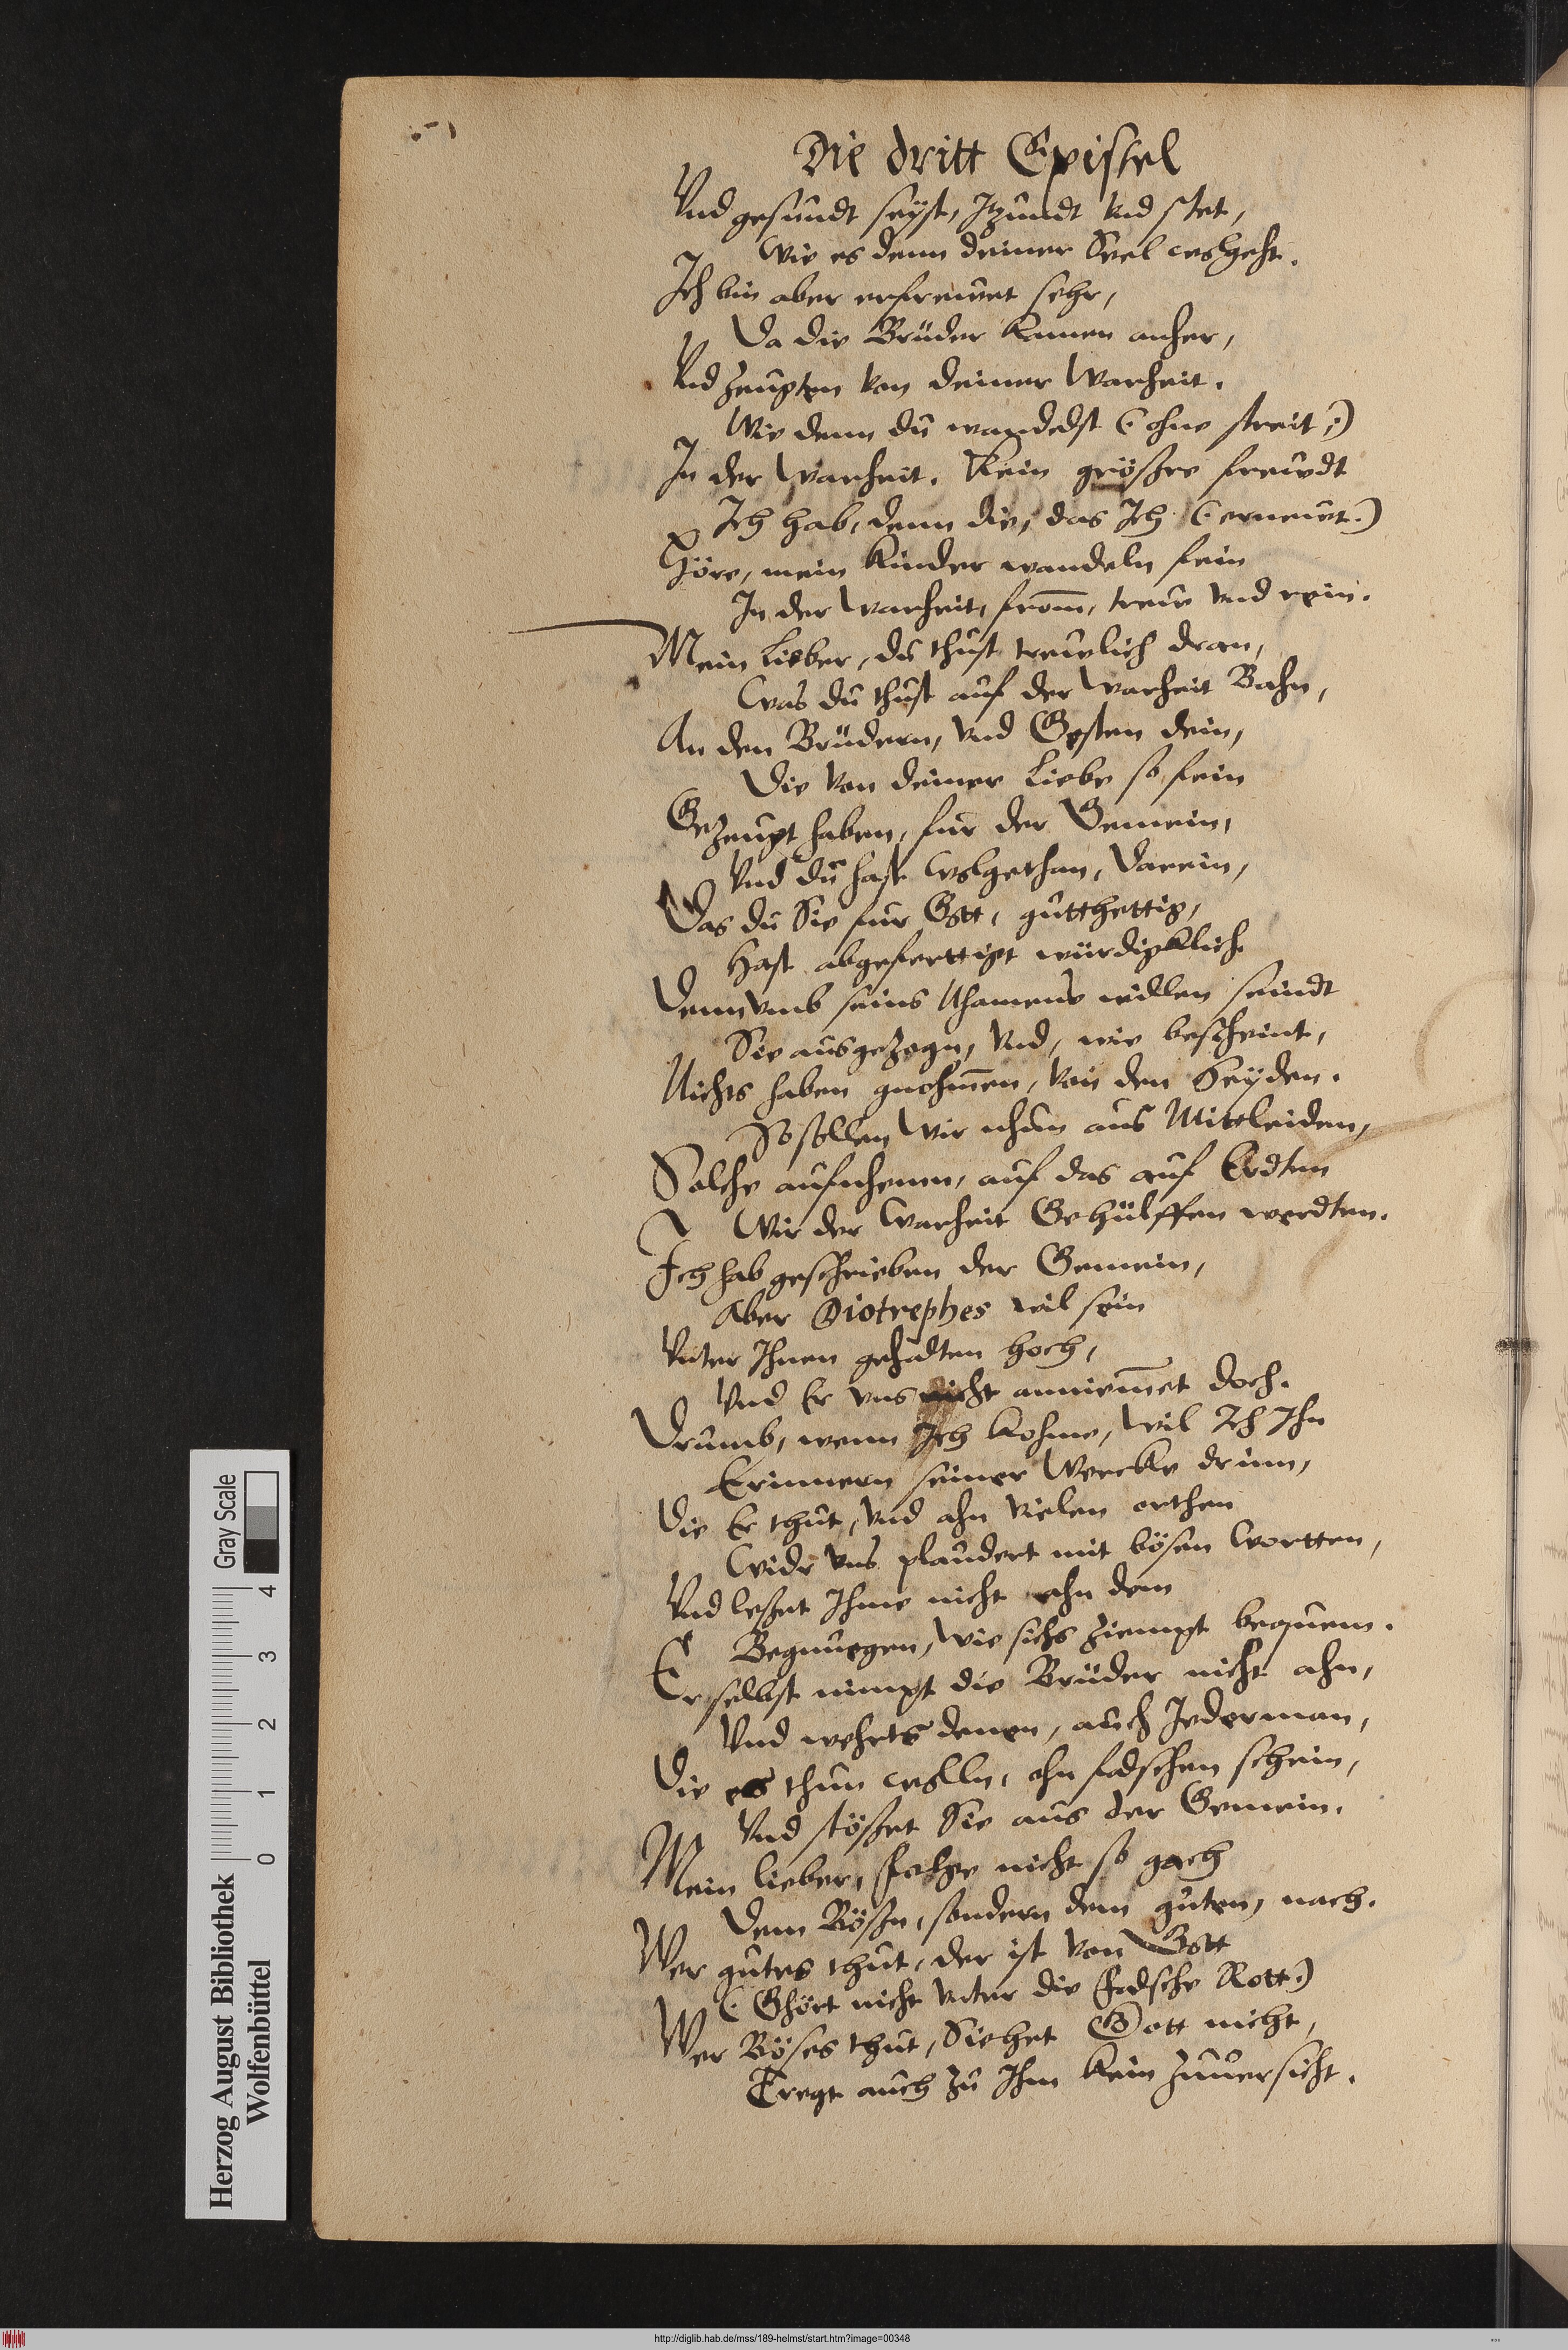 Die dritt Epistel
Vnd gesundt seyst, Jtzundt vnd stet,
Wie es denn deiner Seel wolgeht.
Jch bin aber erfrewet sehr,
Da die Brüder kamen anher,
Vnd zeugten von deiner Warheit.
Wie denn du wandelst (: ohne streit :)
Jn der Warheit. Kein größre frewdt
Jch hab, denn die, das Jch (: ernewt :)
Höre, mein Kinder wandeln fein
Jn der Warheit, from̄, trew vnd rein.
Mein Lieber, du thust trewlich dran,
Was du thust auf der Warheit Bahn,
An den Brüdern, vnd Gesten dein,
Die von deiner Liebe so fein
Gezeugt haben, fur der Gemein,
Vnd du hast wolgethan, darein,
Das du Sie fur Gott, gutthettig,
Hast abgeferttigt würdigklich
Denn vmb seins Nhamens willen seindt
Sie ausgezogn, Vnd, wie bescheint,
Nichts haben gnohm̄en, von den Heyden.
So sollen Wir nhun aus Mittleiden,
Solche aufnhemen, auf das auf Erdten
Wir der Warheit Gehülffen werdten.
Jch hab geschrieben der Gemein,
Aber Diotrephes wil sein
Vnter Jhnen gehalten hoch,
Vnd Er vns nicht anniem̄et doch.
Drumb, wenn Jch kohme, Wil Jch Jhn
Erinnern seiner Wercke drinn,
Die Er thut, Vnd ahn vielen orthen
Widr Vns plaudert mit bösen Wortten,
Vnd leßet Jhme nicht ahn dem
Begnuegen, Wie sichs ziempt bequem.
Er selbst nimpt die Brüder nicht ahn,
Vnd wehrts denen, auch Jederman,
Die es thun wolln, ohn falschen schein,
Vnd stößet Sie aus der Gemein.
Mein lieber, Folge nicht so gach
Dem Bößn, sondern dem guten, nach.
Wer gutes thut, der ist von Gott
(: Ghört nicht vnter die falsche Rott :)
Wer Böses thut, Siehet Gott nicht,
Tregt auch zu Jhm kein zuuersicht.
Herzog August Bibliothek
Wolfenbüttel
0 1 2 3 4
Gray Scale
http://diglib.hab.de/mss/189-helmst/start.htm?image=00348